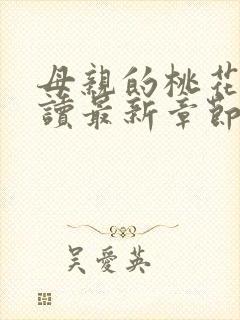 母親的桃花
讀最新章節
吳愛英